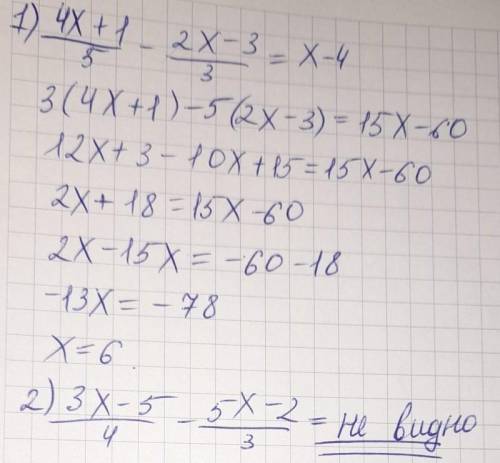 1) (4x+1)/5 - (2x-3)/3 = x-4
3(4x+1)-5(2x-3)=15x-60
12x+3-10x+15=15x-60
2x+18=15x-60
2x-15x=-60-18
-13x=-78
x=6.
2) (3x-5)/4 - (5x-2)/3 = не видно